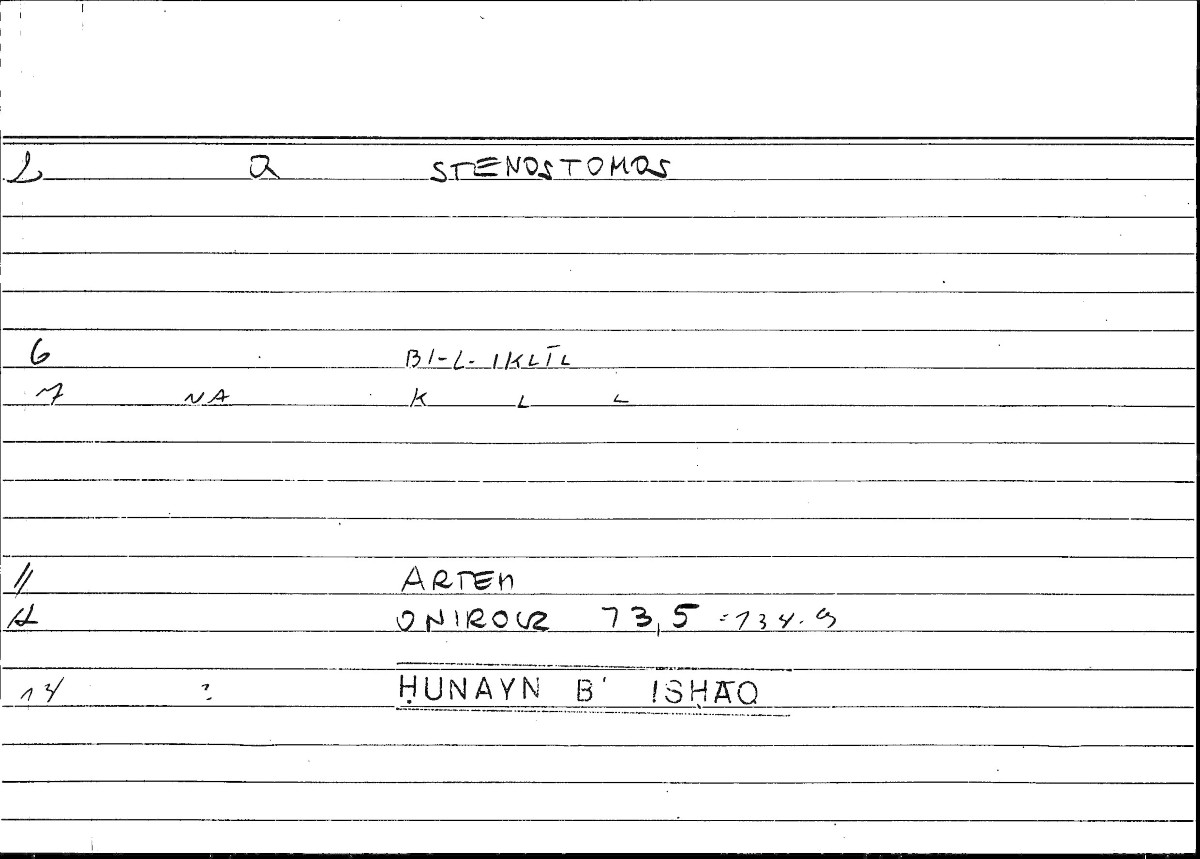 2 Q STENOSTOMOS
6 BI-L-IKLĪL
7 NA K L L
11 ARTEM
ONIROCR 73,5 = 134.9
13 ? ḤUNAYN B' ISḤĀQ